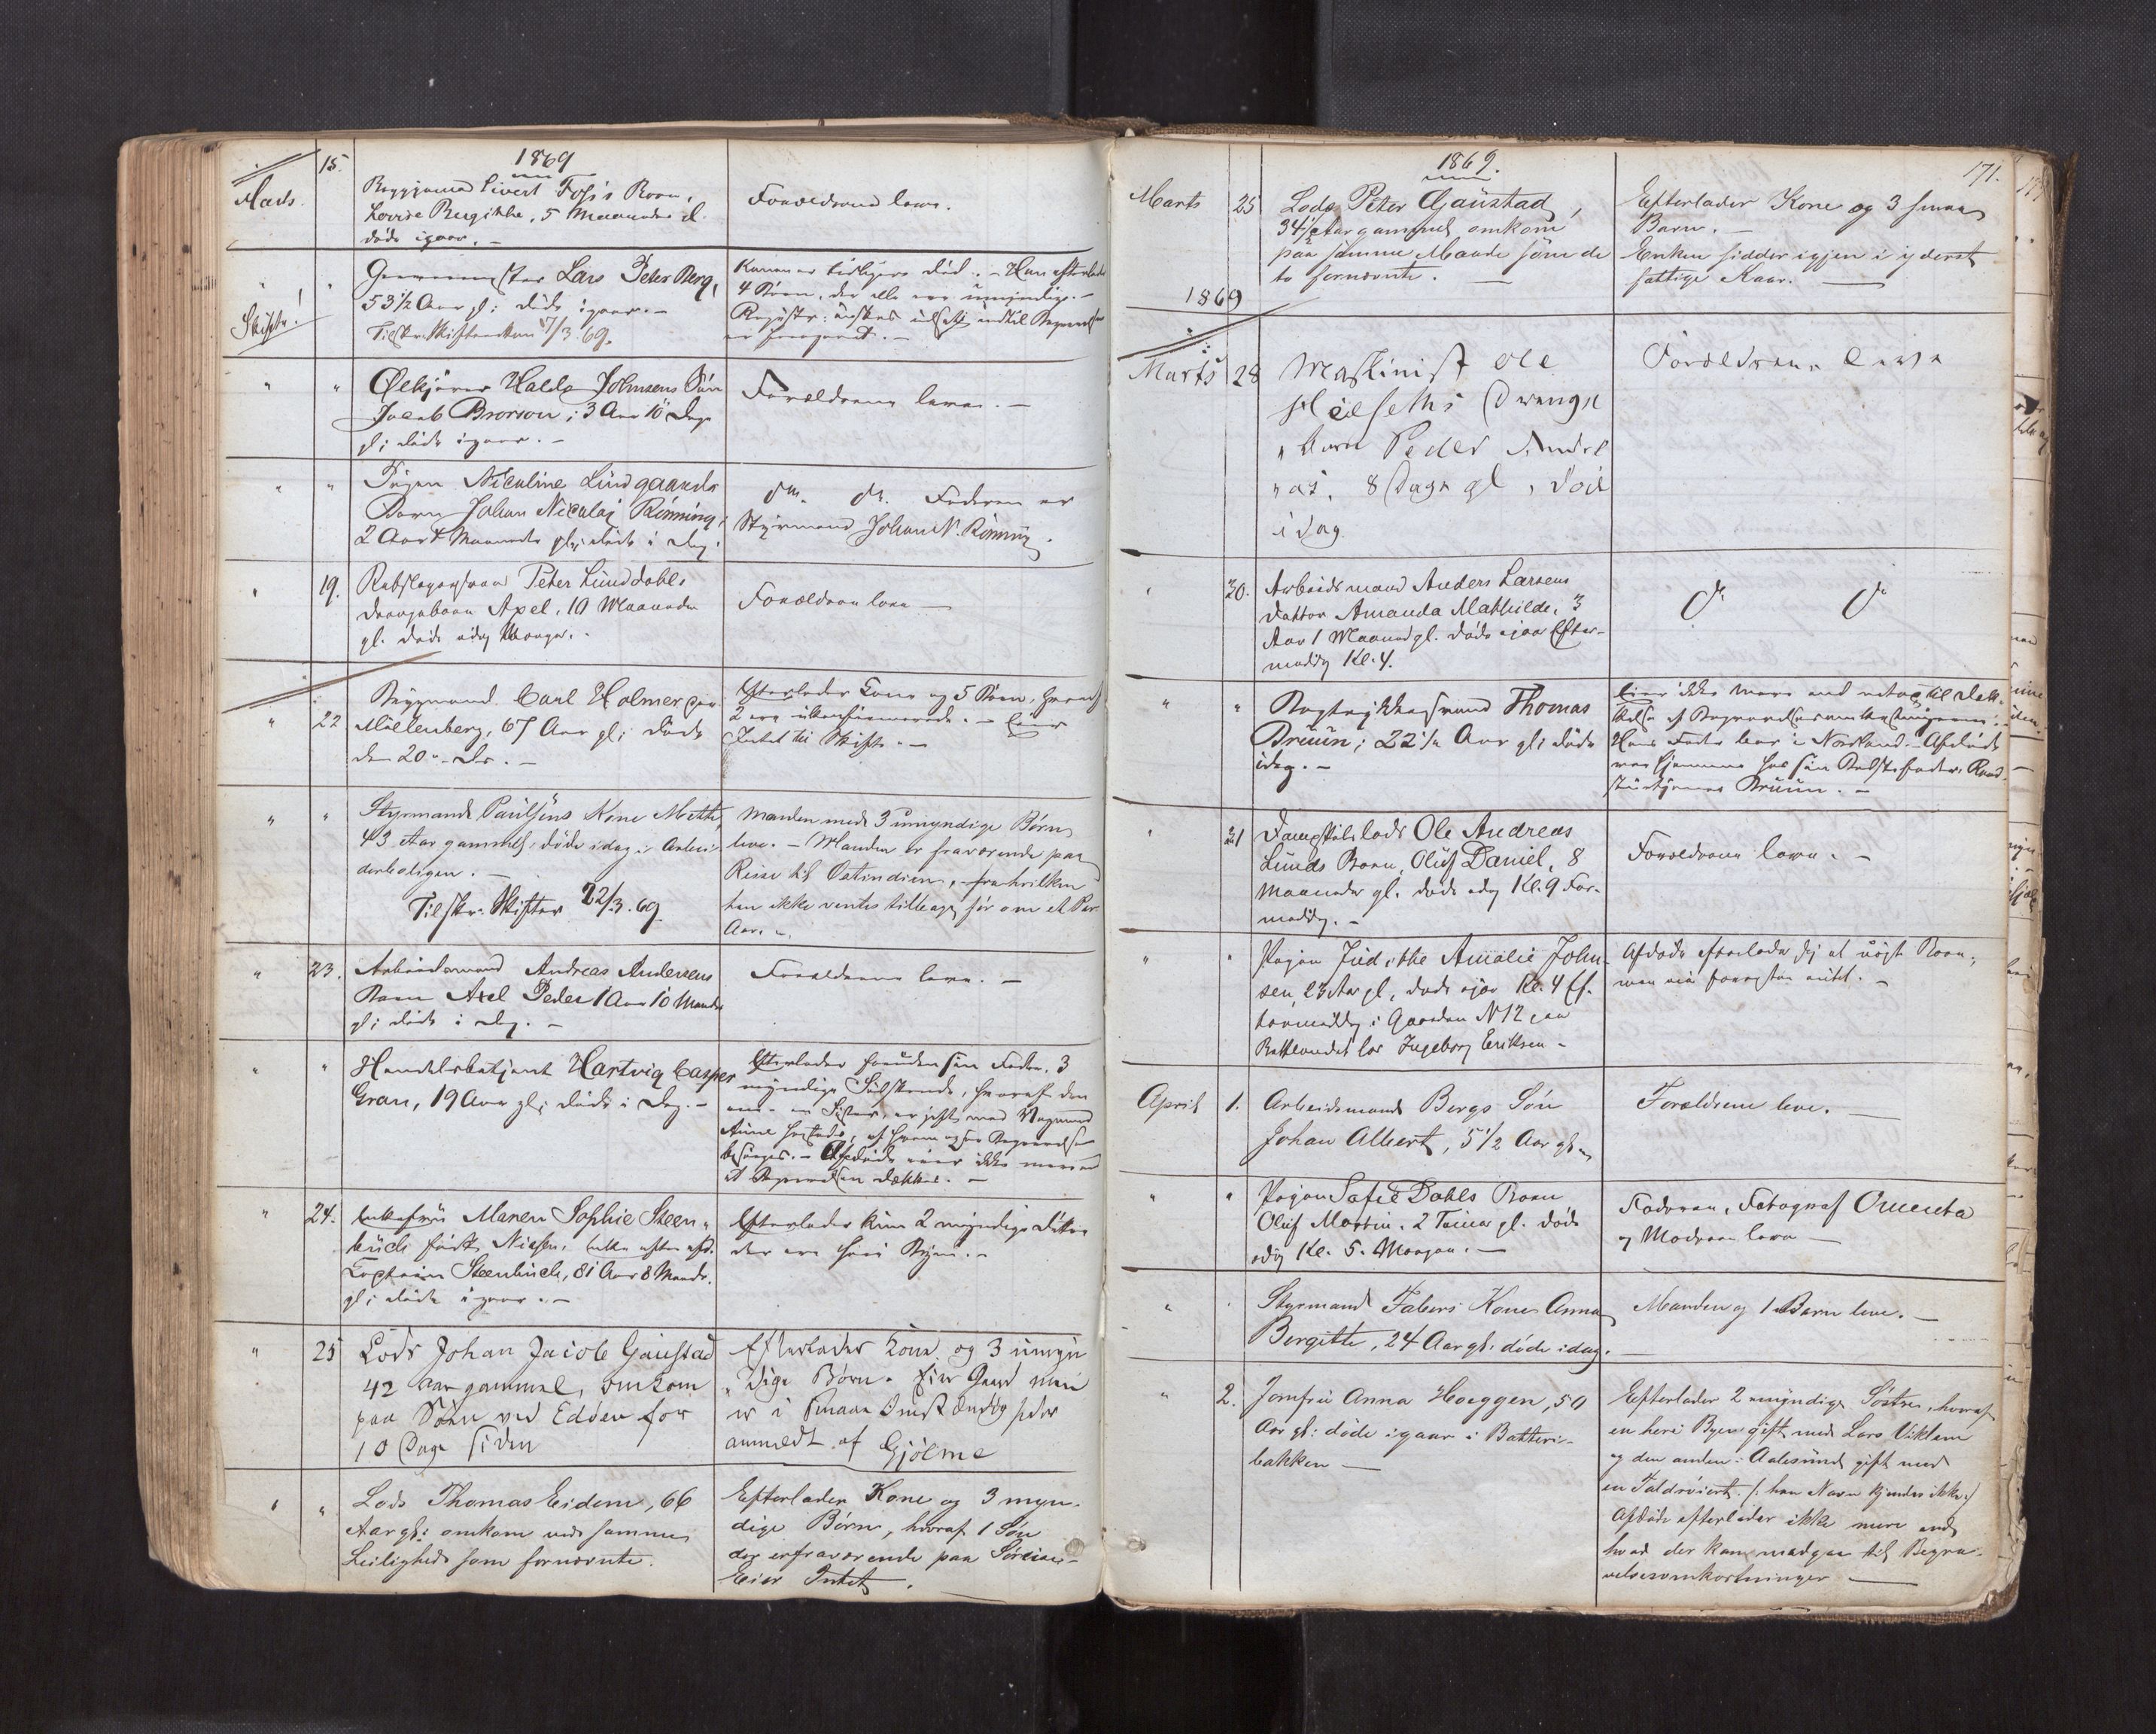 1869
Marts. 15.
Byggmand Sivert Fos's Barn,
Lovise Bergitthe, 5 Maaneder gl.
døde igaar. —
Forældrene leve.
" " Lars Peter Berg,
53 1/2 Aar gl; døde igaar. —
Tilskr. Skifteretten 17/3 69.
Skifte!
Konen er tidligere død. — Han efterlader
4 Børn, der alle ere umyndige. —
Registr: ønskes udsat indtil Begravelsen
er foregaaet. —
" " Ølkjører Halds Johnsens Søn
Jacob Brorson; 3 Aar 10 Dage
gl; døde igaar. —
Forældrene leve. —
" " Pigen Niculine Lindgaards
Barn Johan Nicolaj Rønning,
2 Aar 4 Maaneder gl; døde i Dag.
do. do. Faderen er
Styrmand Johan N. Rønning.
" 19. Rebslagersvend Peter Lunddahls
Drengebarn Axel, 10 Maaneder
gl. døde idag Morges. -
Forældrene leve —
" 22 Bygmand Carl Holmer paa
Møllenberg, 67 Aar gl; døde
den 20de ds. —
Efterlader Kone og 5 Børn, hvoraf
2 ere ukonfirmerede. — Eier
Intet til Skifte. —
" " Styrmands Paulsens Kone Mette,
43 Aar gammel, døde idag i Arbei-
derboligen. —
Tilskr. Skifter 22/3. 69.
Manden med 3 umyndige Børn
leve. — Manden er fraværende paa
Reise til Ostindien, fra hvilken
han ikke ventes tilbage før om et Par
Aar. —
" 23. Arbeidsmand Andreas Andersens
Barn Axel Peder 1 Aar 10 Maander
gl; døde i Dag. —
Forældrene leve. —
" " Handelsbetjent Hartvig Casper
Gran, 19 Aar gl; døde i Dag. —
Efterlader foruden sin Fader, 3
myndige Søskende, hvoraf den
ene en Søster, er gift med
af hvem og Begravelsen
besørges. — Afdøde eier ikke mere end
at Begravelsen dækkes. —
" 24. Enkefru Maren Sophie Steen-
buch født Nissen, Enke efter afd.
Captain Steenbuch, 81 Aar 8 Maaneder
gl; døde igaar. —
Efterlader kun 2 myndige Døttre
der ere her i Byen. —
" 25 Lods Johan Jacob Gaustad
42 Aar gammel, omkom
paa Søen ved Edøen for
10 Dage siden
Efterlader Kone og 3 umyn
dige Børn. Eier Gaard men
er i smaa Omstændigheder
anmeldt af Gjølme
" " Lods Thomas Eidem, 66
Aar gl: omkom ved samme
Leilighed som fornævnte.
Efterlader Kone og 3 myn-
dige Børn, hvoraf 1 Søn
der er fraværende paa Søreise.
Eier Intet.
1869. 171.
Marts 25 Lods Peter Gjaustad,
34 1/2 Aar gammel, omkom
paa samme Maade som de
to fornævnte. —
Efterlader Kone og 3 smaa
Børn. —
Enken sidder igjen i yderst
fattige Kaar. —
1869
Marts 28 Maskinist Ole
Hielseths Drenge
barn Peder Andre
as, 8 Dage gl, døde
i Dag.
Forældrene leve
" 30. Arbeidsmand Anders Larsens
Datter Amanda Mathilde, 3
Aar 1 Maaned gl. døde igaar Efter-
middag Kl. 4.
do do
" " Thomas
Bruun; 22 1/2 Aar gl; døde
idag. —
Eier ikke mere end netop til Dæk-
kelse af Begravelsesomkostningerne.
Hans Fader bor i Nordland. — Afdøde
var hjemme hos sin Bedstefader, Raad-
stuetjener Bruun. —
" 31 Dampskibslods Ole Andreas
Lunds Barn, Oluf Daniel, 8
Maaneder gl. døde idag Kl. 9 For-
middag. —
Forældrene leve. —
" " Pigen Judithe Amalie John-
sen, 23 Aar gl, døde igaar Kl. 4 Ef-
termiddag i Gaarden N 12 paa
Baklandet hos Ingeborg Eriksen -
Afdøde efterlader sig et uægte Barn,
men eier forøvrigt intet. —
April 1. Arbeidsmand Bergs Søn
Johan Albert, 5 1/2 Aar gl.
Forældrene leve. —
" " Pigen Sofie Dahls Barn
Oluf Martin, 2 Timer gl. døde
idag Kl. 5 Morgen. —
Faderen, Fotograf Omenta
og Moderen leve —
" " Styrmand Fabers Kone Anna
Bergitte, 24 Aar gl. døde idag. —
Manden og 1 Barn leve. —
" 2. Jomfru Anna Hoeggen, 50
Aar gl: døde igaar i Batteri-
bakken —
Efterlader 2 myndige Søstre, hvoraf
en heri Byen gift med Lars Viklem
og den anden i Aalesund gift med
en Toldrøiert. /: hans Navn kjendes ikke :/
Afdøde efterlader ikke mere end
hvad der kan medgaa til Begra-
velsesomkostninger —